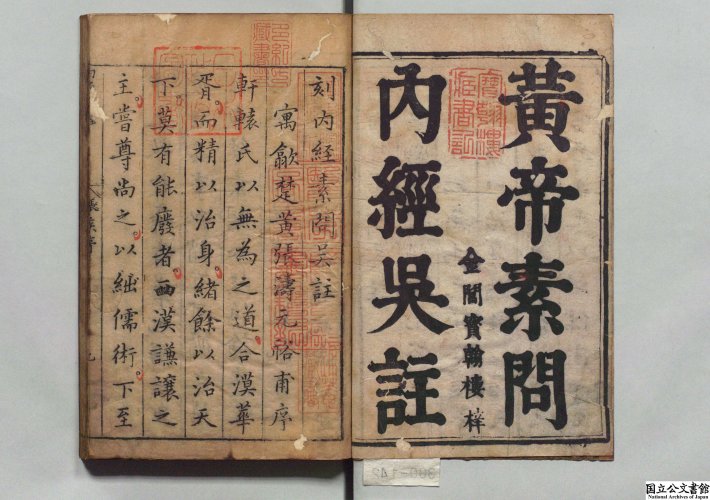 黃帝素問
內經吳註
金閶寳翰樓梓
刻内經素問吳註
寓歙楚黃張濤元裕甫序
軒轅氏以無為之道合漠華
胥而精以治身緒餘以治天
下莫有能廢者西漢謙讓之
主嘗尊尚之以絀儒術下至
國立公文書館
National Archives of Japan